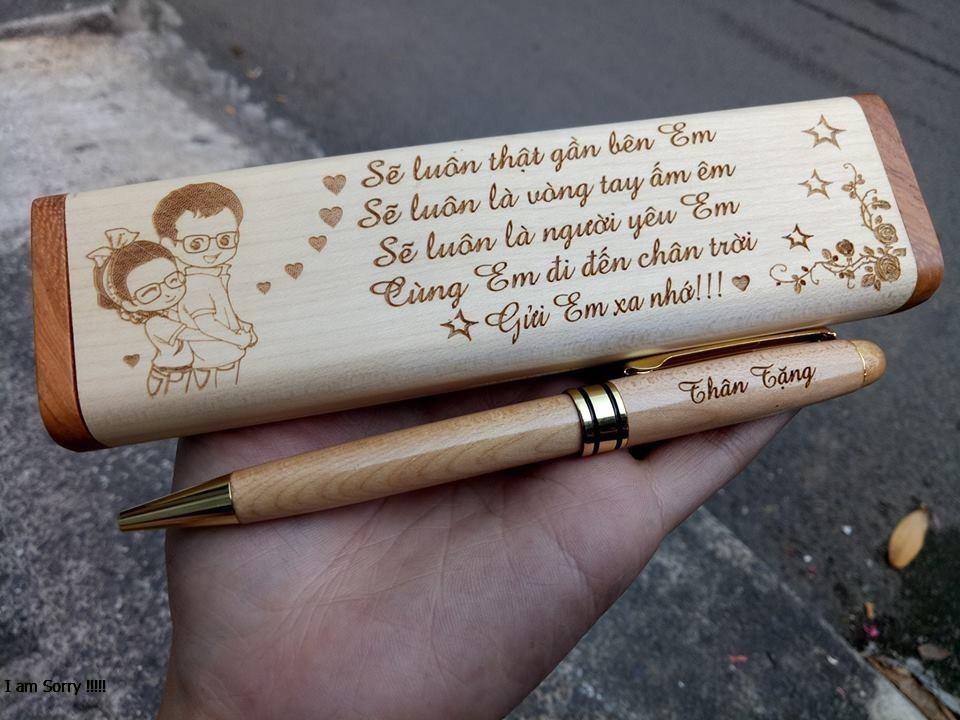 Sẽ luôn thật gần bên Em
Sẽ luôn là vòng tay ấm êm
Sẽ luôn là người yêu Em
Cùng Em đi đến chân trời
Gửi Em xa nhớ!!!
Thân Tặng
I am Sorry !!!!!